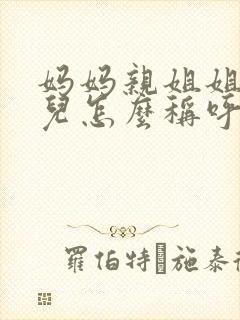 妈妈亲姐姐
兒怎麼稱呼
羅伯特 施泰